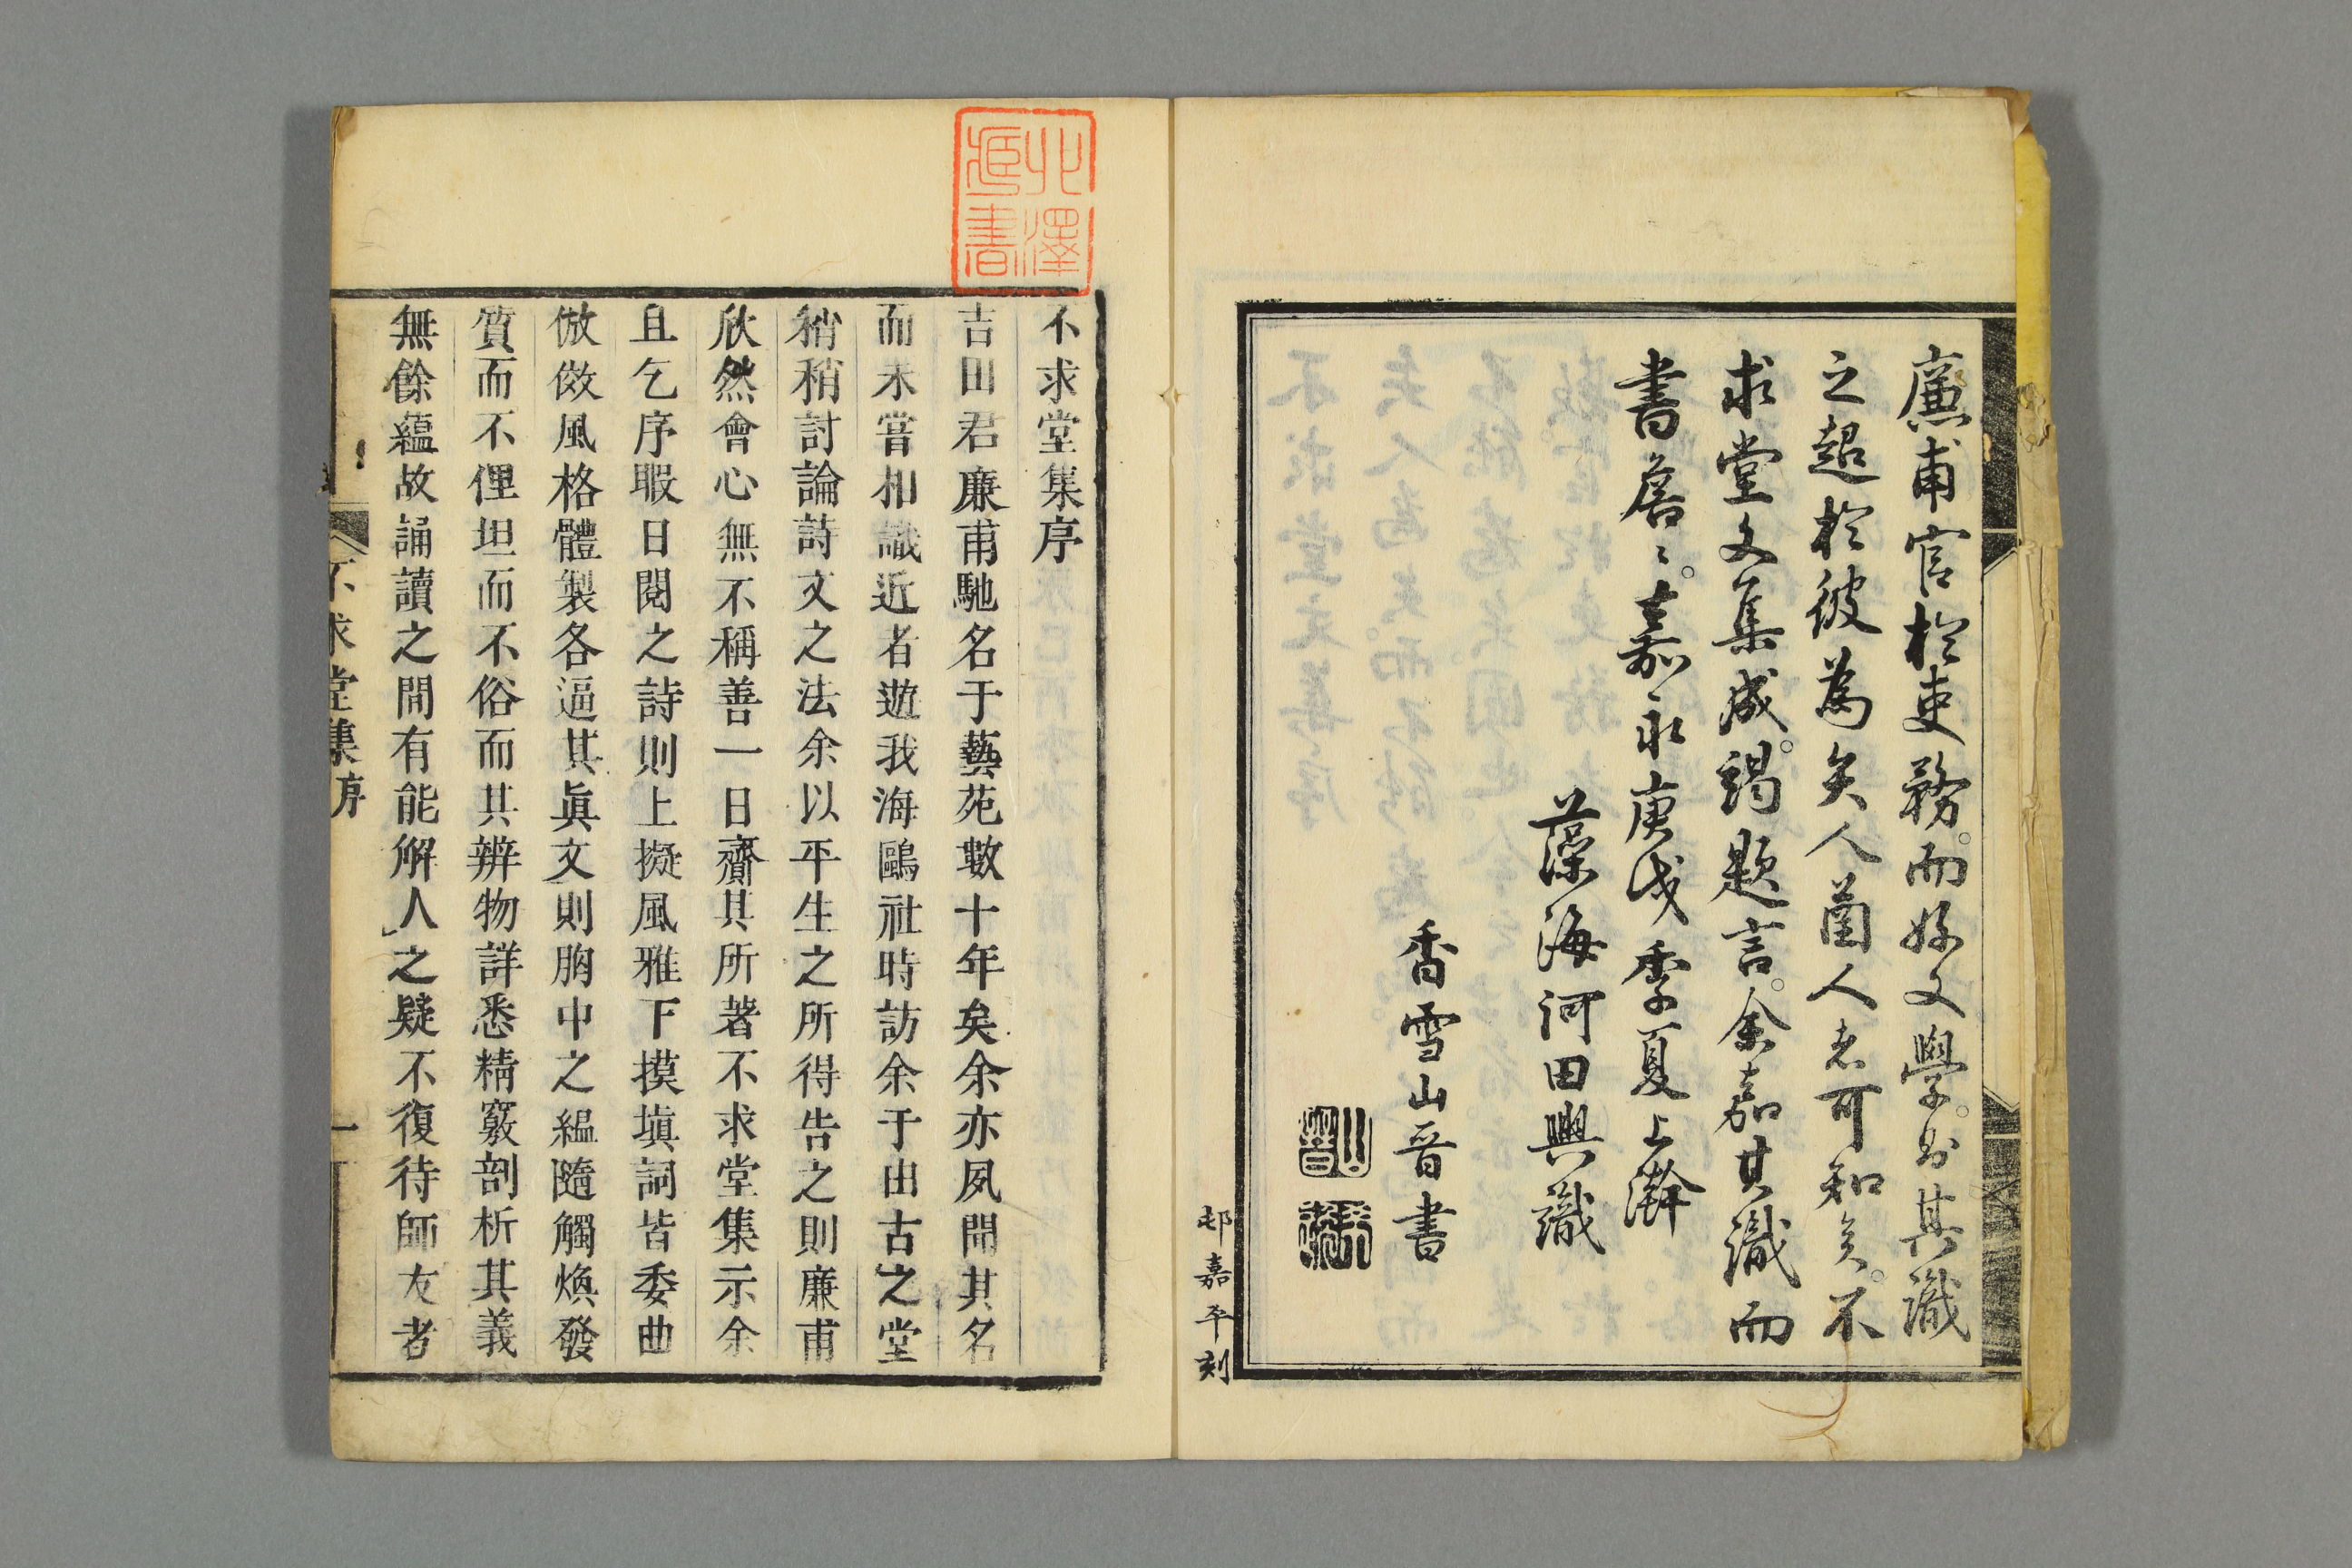 廉甫官於吏務。而好文學。則其識
之超於彼為矣人菌人者可知矣。不
求堂文集成。謁題言。余嘉其識而
書詹〻。嘉永庚戌季夏上澣
藻海河田興識
香雪山晋書
邨嘉平刻
北澤
藏書
不求堂集序
吉田君廉甫馳名于藝苑數十年矣余亦夙聞其名
而未甞相識近者遊我海鷗社時訪余于由古之堂
稍稍討論詩文之法余以平生之所得告之則廉甫
欣然會心無不稱善一日齎其所著不求堂集示余
且乞序暇日閱之詩則上擬風雅下摸塡詞皆委曲
倣傚風格體製各逼其眞文則胸中之縕隨觸煥發
質而不俚坦而不俗而其辨物詳悉精竅剖析其義
無餘蘊故誦讀之間有能解人之疑不復待師友者
不求堂集序
一